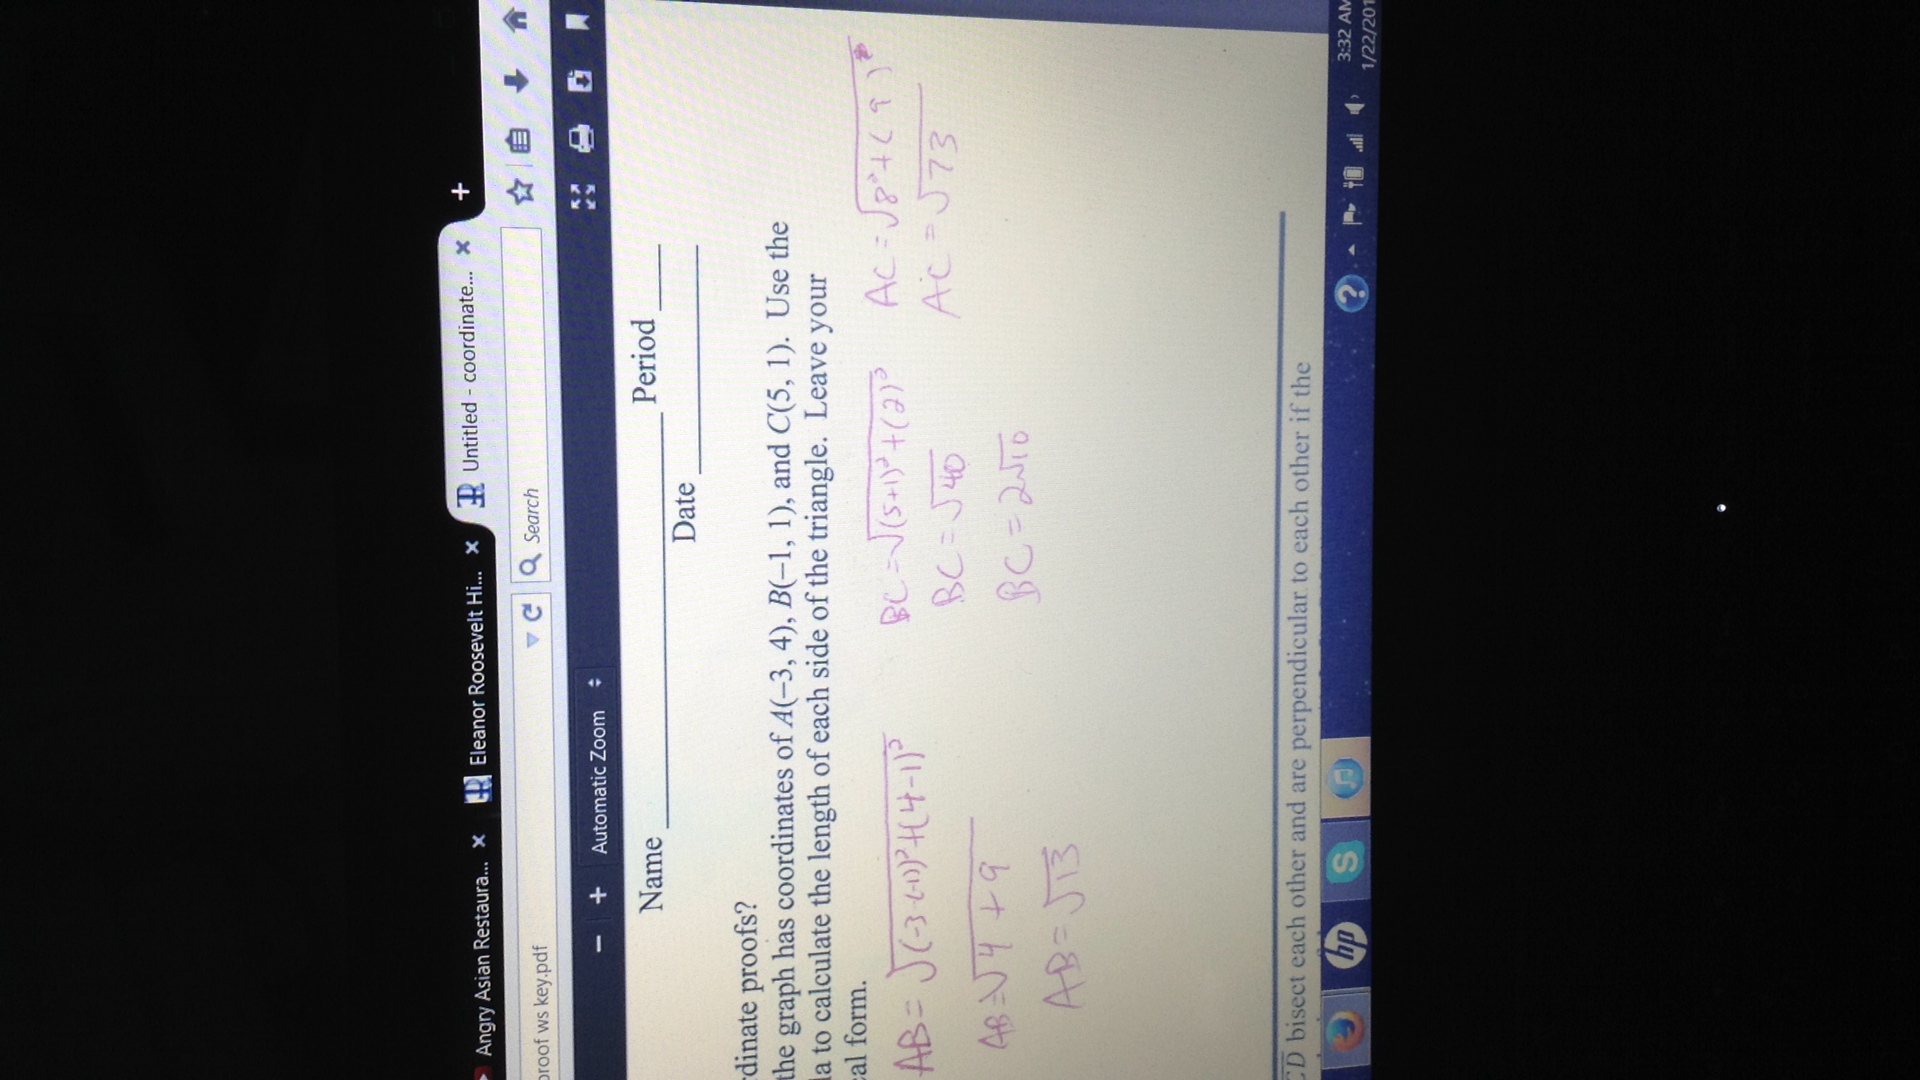 Angry Asian Restaura... × Eleanor Roosevelt Hi... × Untitled - coordinate... × +
proof ws key.pdf Search
− + Automatic Zoom
Name ____________ Period ____
Date ____________
rdinate proofs?
the graph has coordinates of A(−3, 4), B(−1, 1), and C(5, 1). Use the
la to calculate the length of each side of the triangle. Leave your
cal form.
AB = √(-3-(-1))²+(4-1)² BC = √(5+1)²+(2)² AC = √8²+(9)
AB = √4+9 BC = √40 AC = √73
AB = √13 BC = 2√10
CD bisect each other and are perpendicular to each other if the
hp S ? 3:32 AM
1/22/201